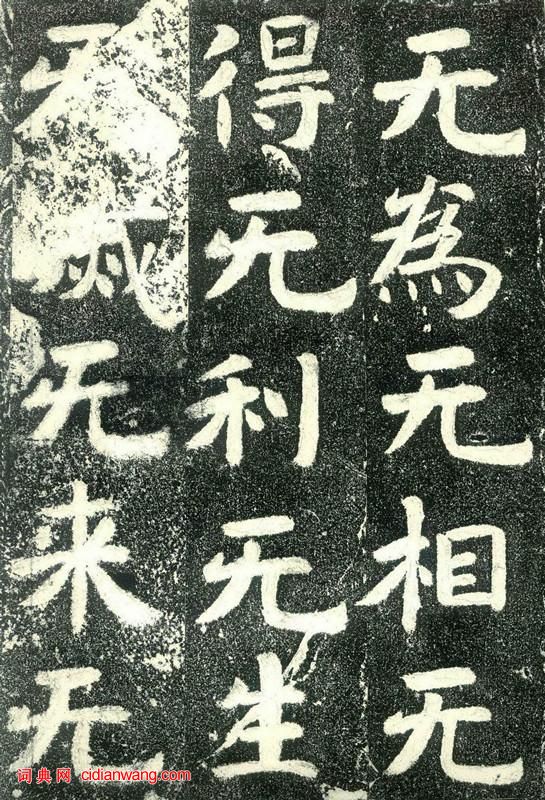 无為无相无
得无利无生
无滅无来无
词典网 cidianwang.com